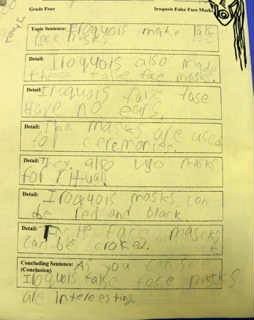 Grade Four Iroquois False Face Masks
rough
Topic Sentence: Iroquois make false
face masks.
Detail: Iroquois also made
these false face masks.
Detail: Iroquois false fase
have no ears.
Detail: The masks are used
for ceremonies.
Detail: They also use masks
for rituals.
Detail: Iroquois masks can
be red and black.
Detail: face masks
can be croked.
Concluding Sentence: As you can see
(Conclusion)
Iroquois false face masks
are interesting.